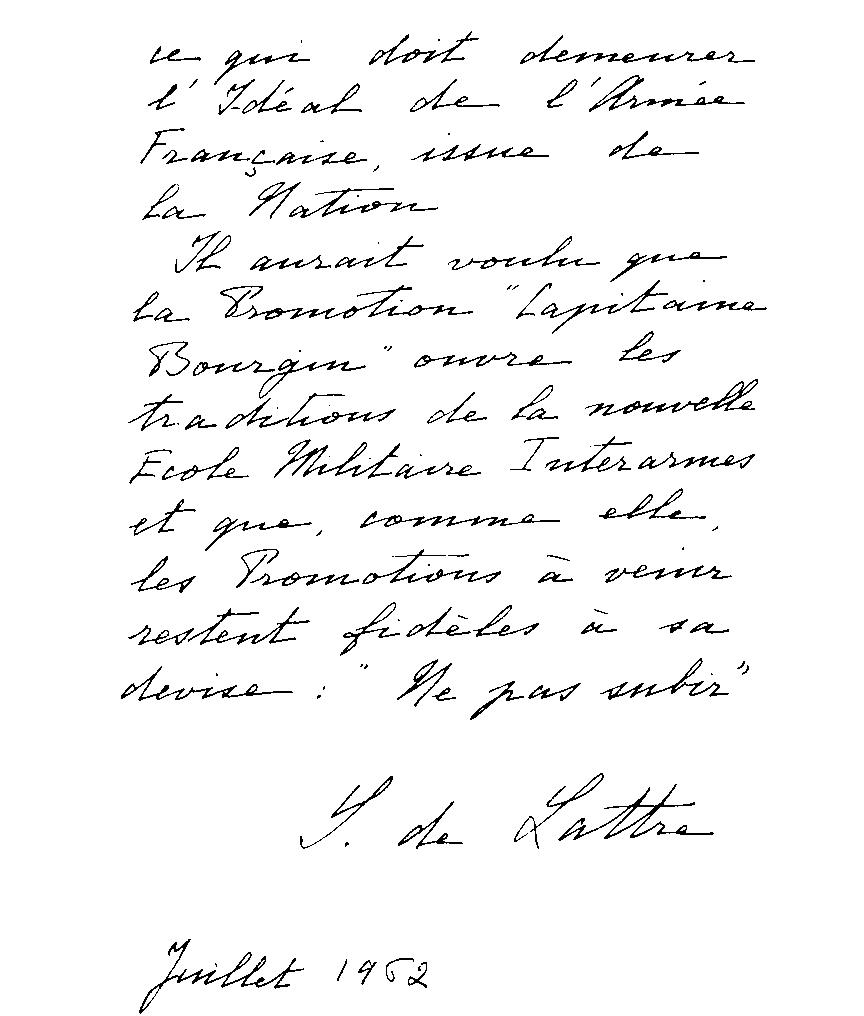 ce qui doit demeurer
l'Idéal de l'Armée
Française, issue de
la Nation
Il aurait voulu que
la Promotion "Capitaine
Bourgin" ouvre les
traditions de la nouvelle
Ecole Militaire Interarmes
et que, comme elle,
les Promotions à venir
restent fidèles à sa
devise : "Ne pas subir"
S. de Lattre
Juillet 1962